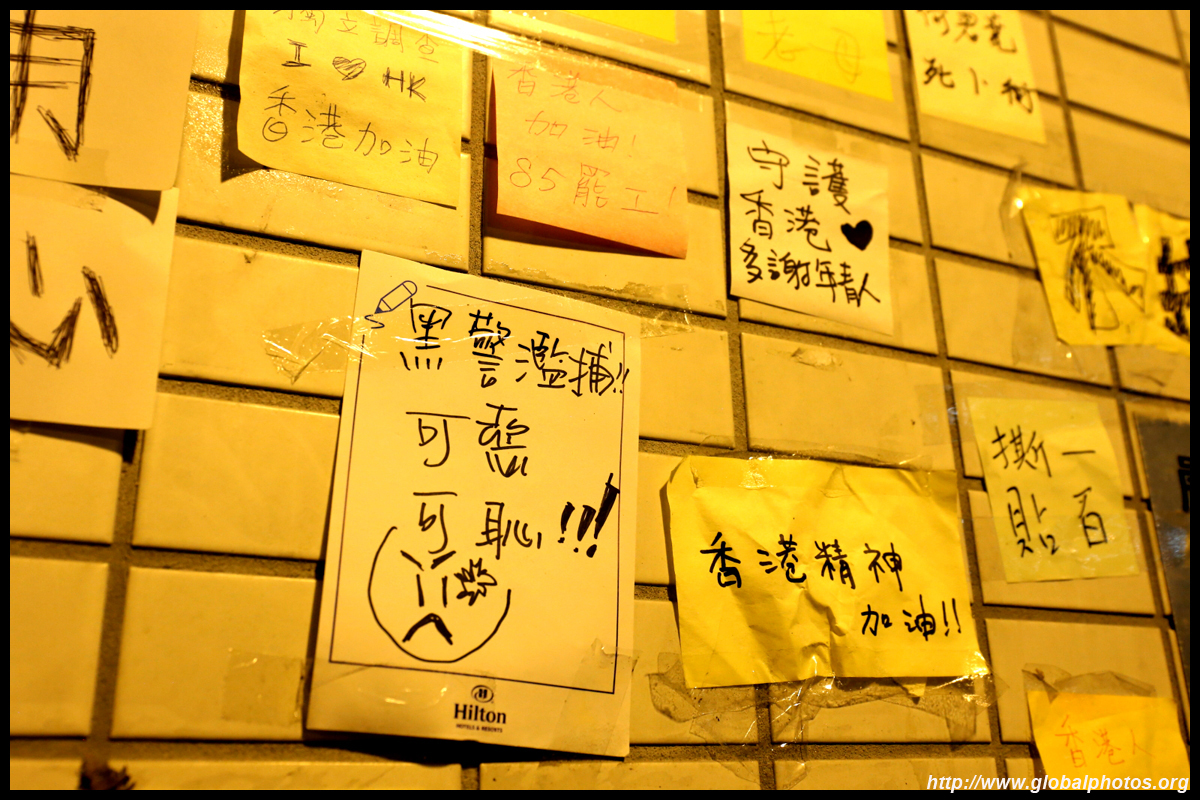 獨立調查
I ♡ HK
香港加油
香港人
加油!
85罷工!
老母
何君堯
死卜街
守護
香港 ♥
多謝年青人
心
不
黑警濫捕!!
可惡
可恥!!!
Hilton
HOTELS & RESORTS
撕一
貼百
香港精神
加油!!
香港人
http://www.globalphotos.org